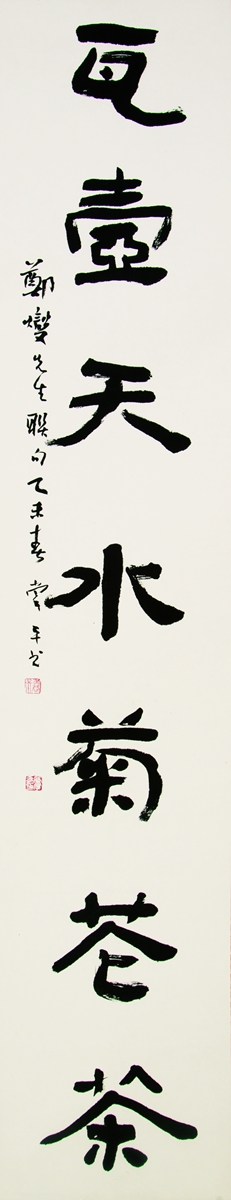 瓦壺天水菊花茶
鄭燮先生聯句乙未春